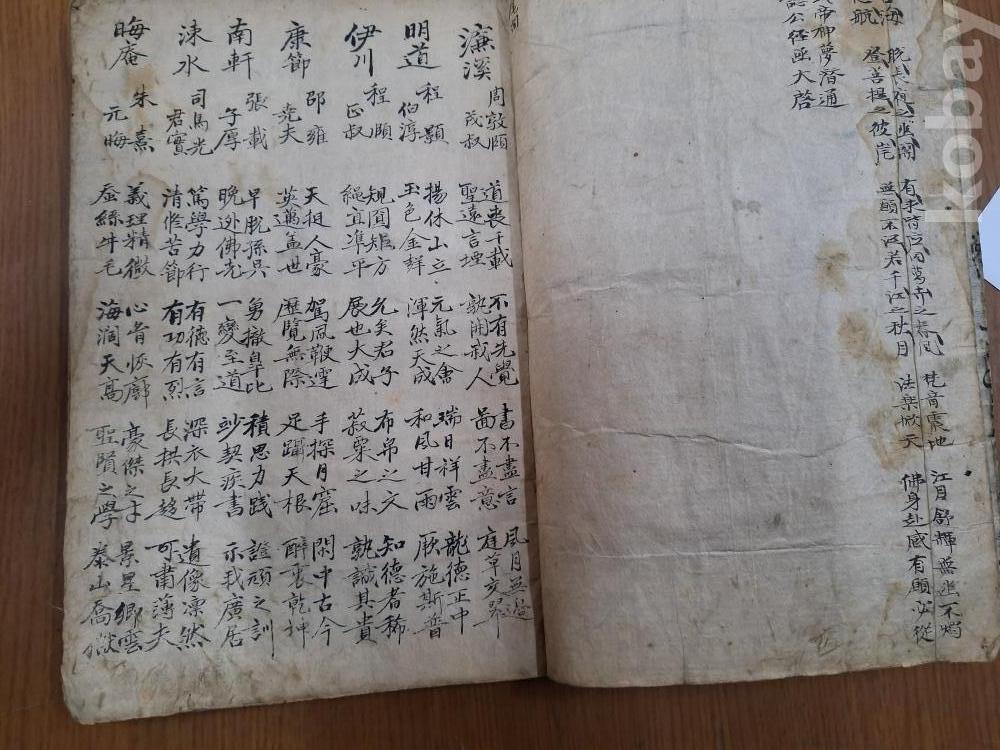 海 脫長夜之幽關 有求皆應同萬卉之春風 梵音震地 江月舒輝無幽不燭
慈航 登菩提之彼岸 無願不從若千江之秋月 法樂掀天 佛身赴感有願必從
武帝神夢發通
誌公径亟大啓
濂溪
周敦頤 道喪千載 不有先覺 書不盡言 風月無邊
茂叔 聖遠言堙 孰開我人 圖不盡意 庭草交翠
明道
程顥 揚休山立 元氣之會 瑞日祥雲 龍德正中
伯淳 玉色金鮮 渾然天成 和風甘雨 厥施斯普
伊川
程頤 規圓矩方 允矣君子 布帛之文 知德者稀
正叔 繩宜准平 展也大成 菽粟之味 孰誠其貴
康節
邵雍 天挺人豪 駕風鞭霆 手探月窟 閑中古今
尭夫 英邁盖世 歷覽無際 足躡天根 醉裏乾坤
南軒
張載 早脫孫吳 勇撤皐比 積思力踐 訂頑之訓
子厚 晩逃佛老 一變至道 妙契疾書 示我廣居
涑水
司馬光 篤學力行 有德有言 深衣大帶 遺像凛然
君實 清修苦節 有功有烈 長拱長趍 可肅薄夫
晦庵
朱熹 義理精微 心胷恢廓 豪傑之才 景星卿雲
元晦 蚕絲牛毛 海濶天高 聖賢之學 泰山喬嶽
kobay